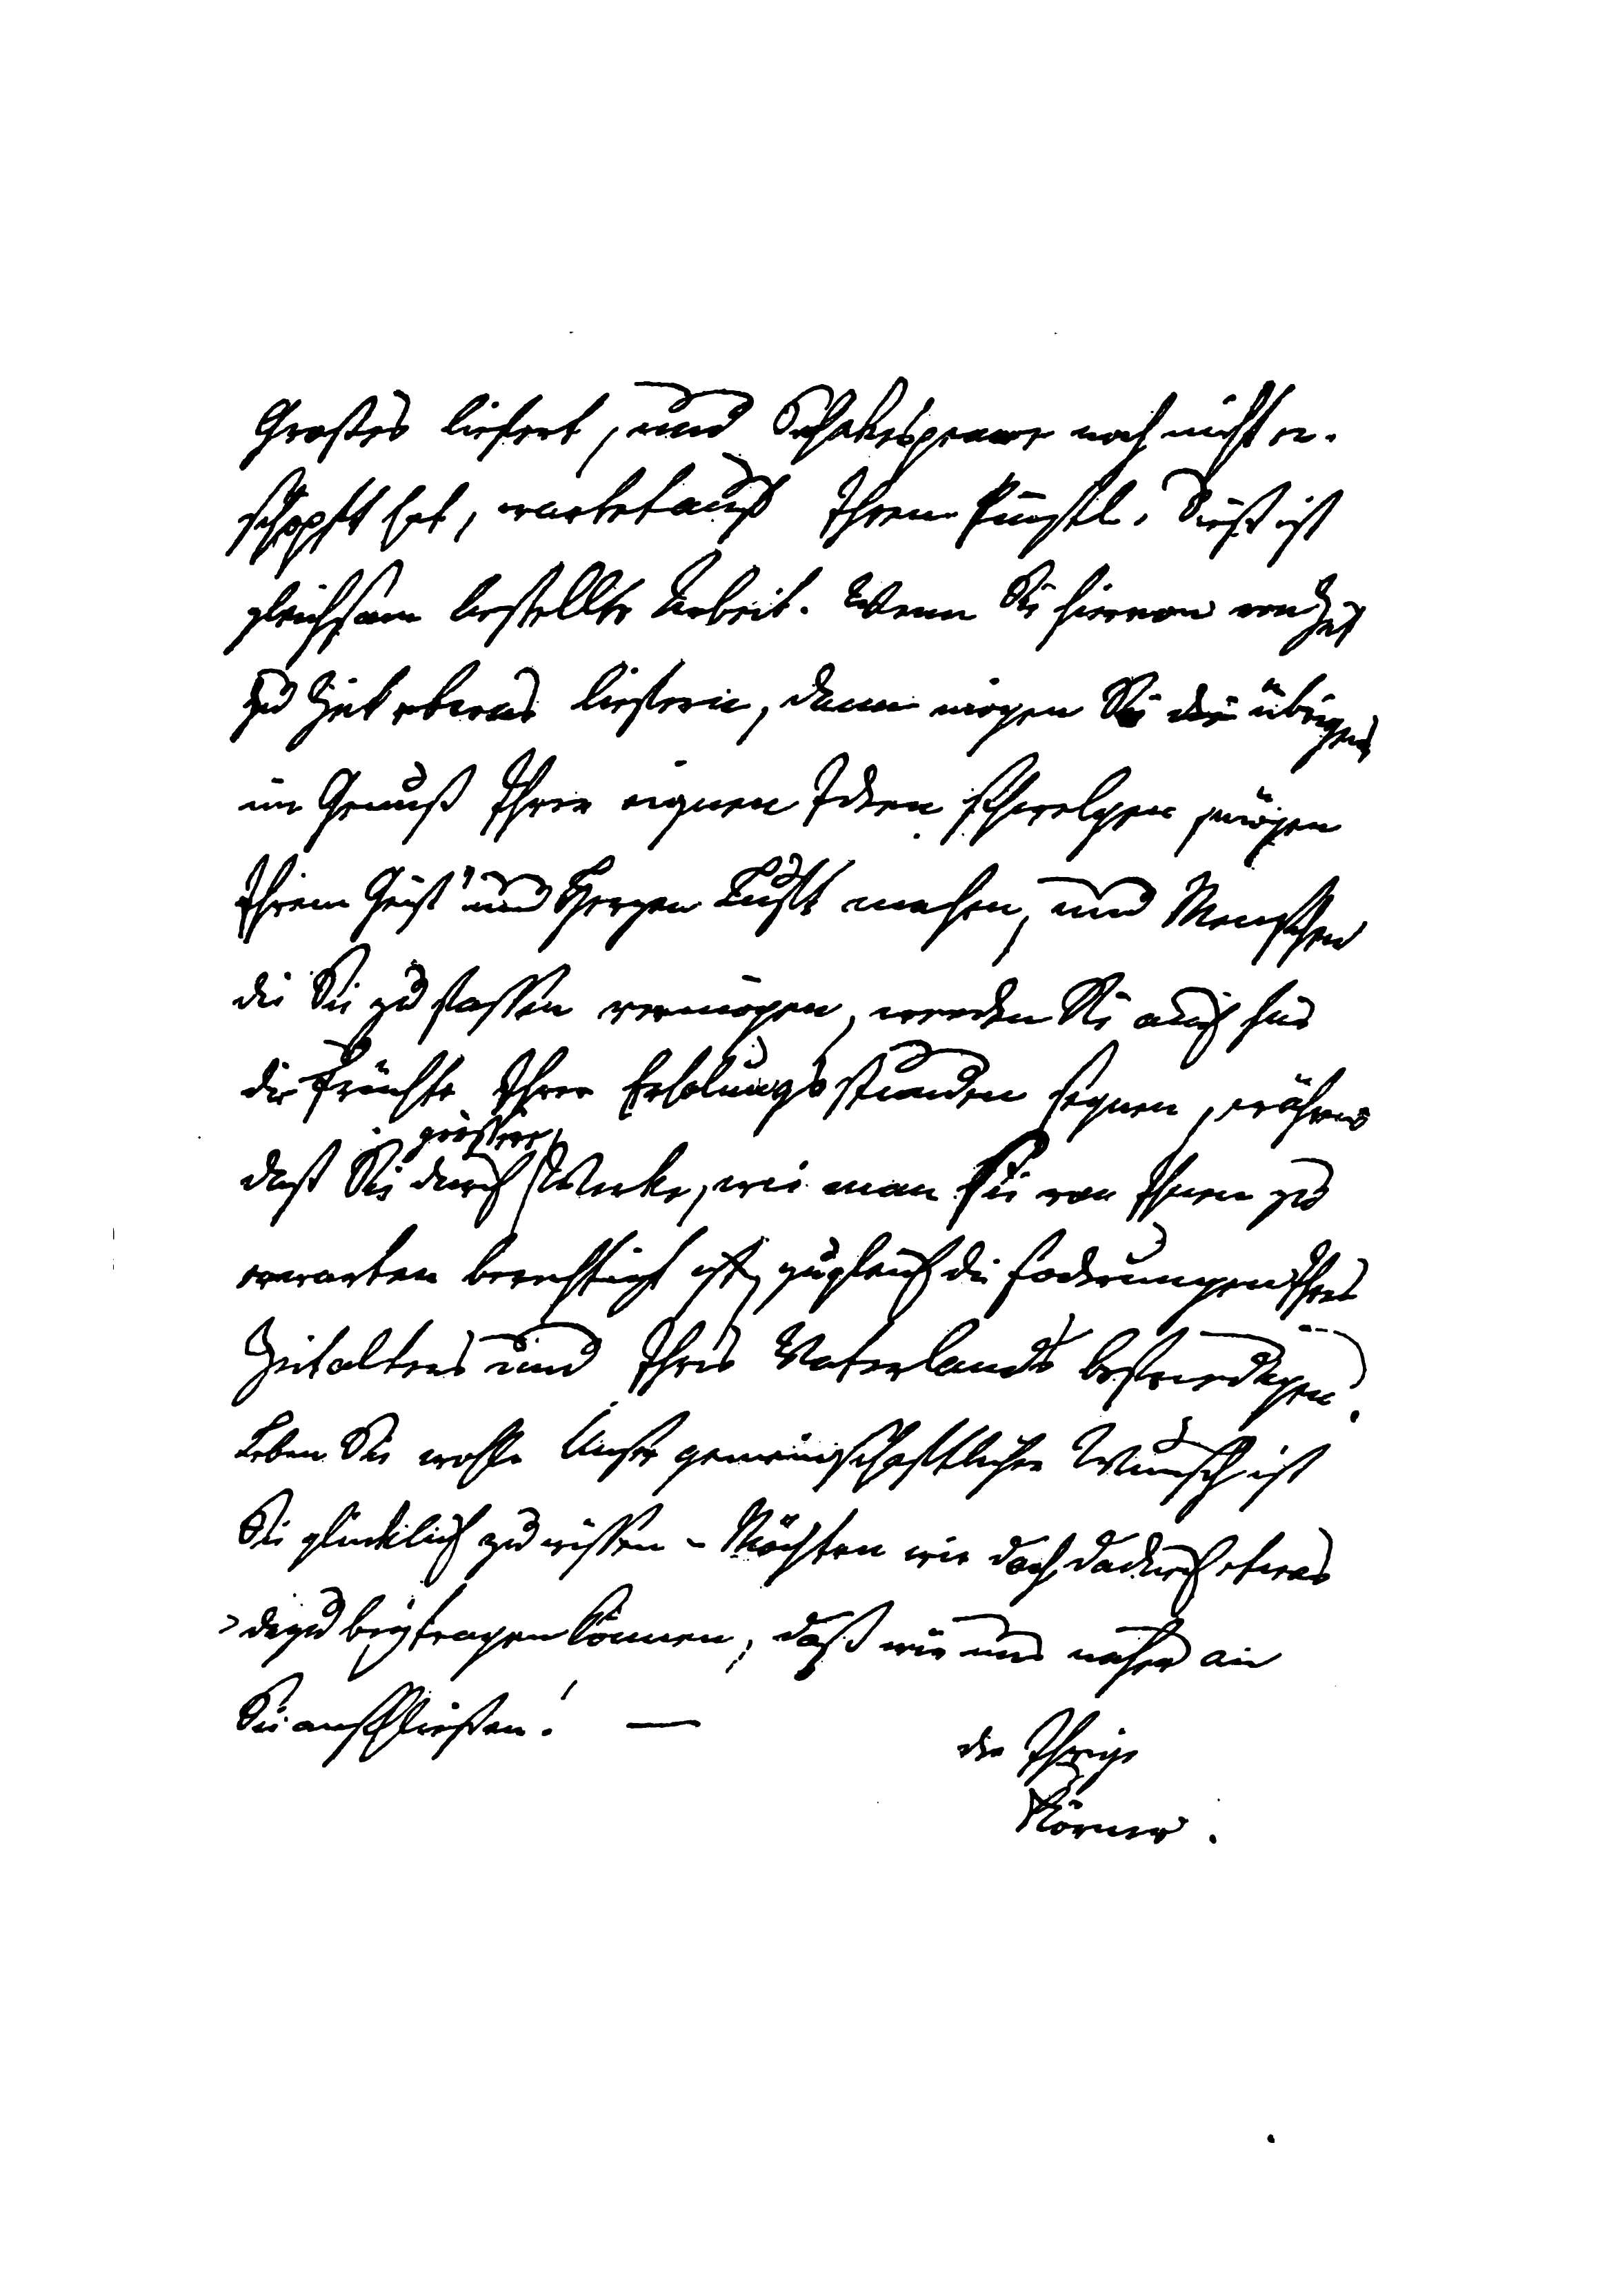 Großes liefert, und Schakespeare noch nicht er-
schöpft hat, wartet auf Ihren Pinsel. Dieß ist
gleichsam bestellte Arbeit. Wenn Sie hiervon von Zeit
zu Zeit etwas liefern, dann mögen Sie die übrigen
im Genuß Ihrer eignen Ideen schwelgen, mögen
Ihrem Geist und Herzen Luft machen, und Menschen
die Sie zu fassen vermögen, werden Sie auch für
die Früchte Ihrer Erholungsstunden segnen, während
daß Sie durch größere Werke, wie man sie von Ihnen zu
erwarten berechtigt ist, zugleich die Foderungen Ihres
Zeitalters und Ihres Vaterlands befriedigen.
Leben Sie wohl. Unser gemeinschaftlicher Wunsch ist
Sie glücklich zu wissen - Möchten wir doch dadurch etwas
dazu beytragen können, daß wir uns näher an
Sie anschließen! —
der Ihrige
Körner.